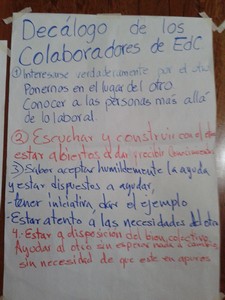 Decálogo de los
Colaboradores de EdC
① Interesarse verdaderamente por el otro
Ponernos en el lugar del otro.
Conocer a las personas mas allá
de lo laboral.
② Escuchar y construir con el
estar abiertos a dar y recibir
3) Saber aceptar humildemente la ayuda
y estar dispuestos a ayudar,
-tener iniciativa dar el ejemplo
-Estar atento a las necesidades del otro
4.- Estar a disposición del bien colectivo,
Ayudar al otro sin esperar nada a cambio,
sin necesidad de que este en apuros